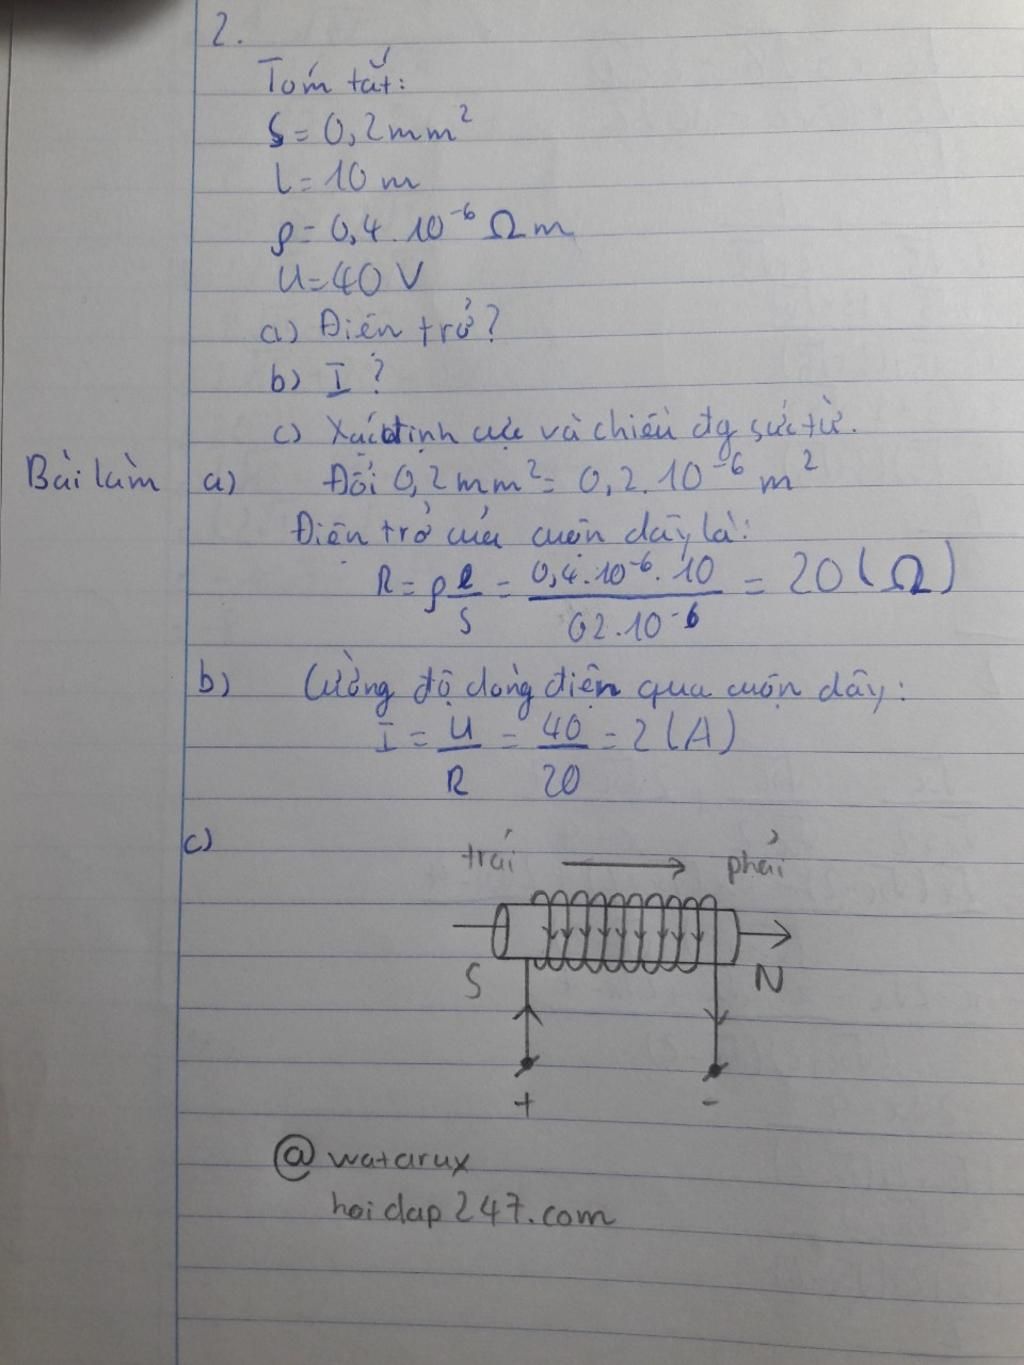 2.
Tóm tắt:
S = 0,2mm²
l = 10 m
ρ = 0,4.10⁻⁶ Ωm
U = 40 V
a) Điện trở?
b) I ?
c) Xác định cực và chiều đg sức từ.
Bài làm a) Đổi 0,2mm² = 0,2.10⁻⁶ m²
Điện trở của cuộn dây là:
R = ρ l/S = 0,4.10⁻⁶.10 / 02.10⁻⁶ = 20 (Ω)
b) Cường độ dòng điện qua cuộn dây:
I = U/R = 40/20 = 2 (A)
c)
trái → phải
S N
+ -
@ watarux
hoidap247.com